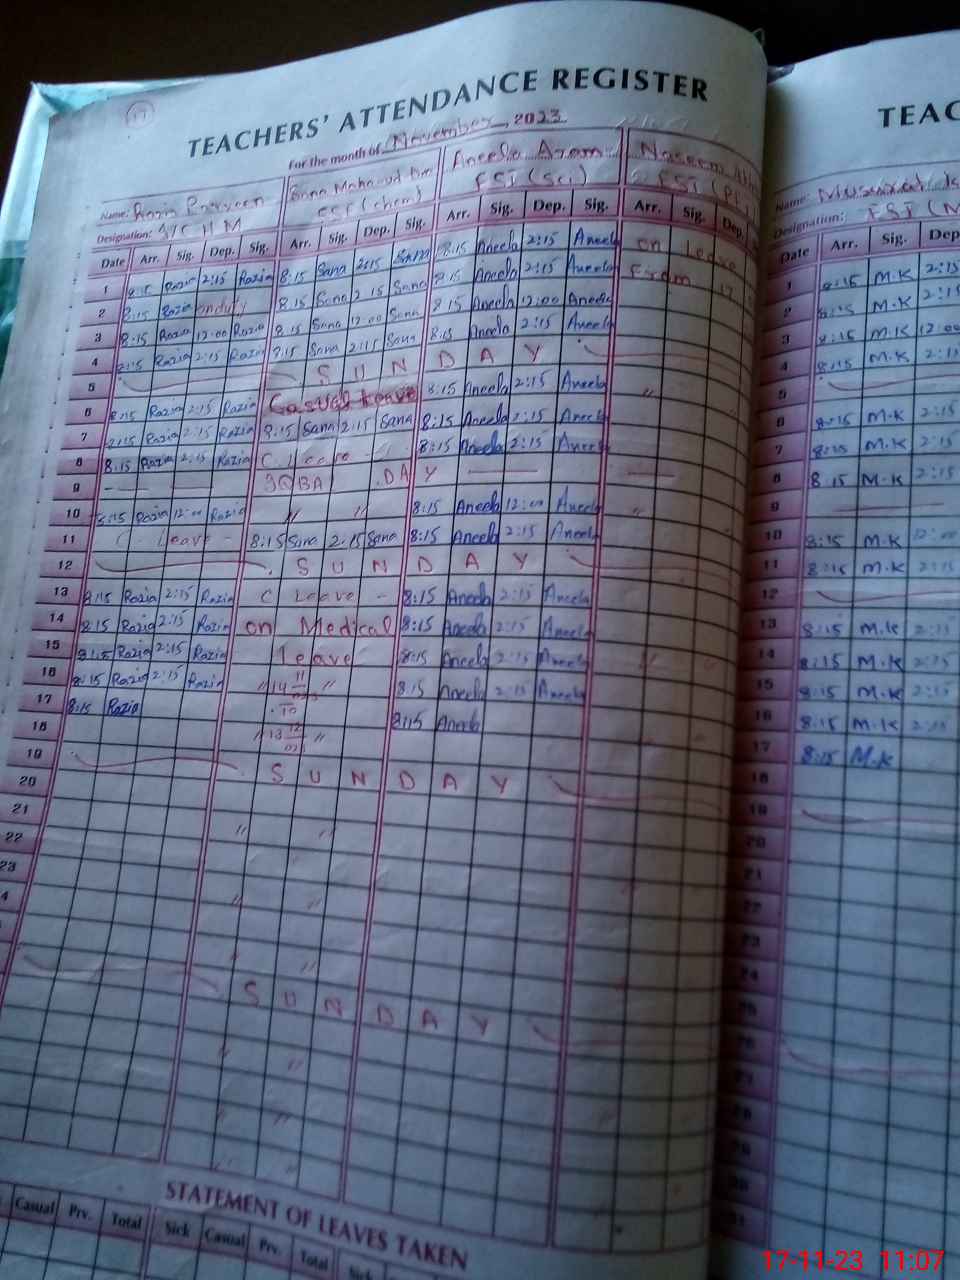 17
TEACHERS' ATTENDANCE REGISTER
For the month of November, 2023
Name: Razia Parveen Sana Mahmood Aneela Azam Naseem
Designation: I/C H M SST (Chem) EST (Sci) EST
Date Arr. Sig. Dep. Sig. Arr. Sig. Dep. Sig. Arr. Sig. Dep. Sig. Arr. Sig. Dep.
1 8:15 Razia 2:15 Razia 8:15 Sana 2:15 Sana 8:15 Aneela 2:15 Aneela on Leave
2 8:15 Razia on duty 8:15 Sana 2:15 Sana 8:15 Aneela 2:15 Aneela From 17
3 8:15 Razia 12:00 Razia 8:15 Sana 12:00 Sana 8:15 Aneela 12:00 Aneela
4 8:15 Razia 2:15 Razia 8:15 Sana 2:15 Sana 8:15 Aneela 2:15 Aneela
5 S U N D A Y
6 8:15 Razia 2:15 Razia Casual Leave 8:15 Aneela 2:15 Aneela "
7 8:15 Razia 2:15 Razia 8:15 Sana 2:15 Sana 8:15 Aneela 2:15 Aneela
8 8:15 Razia 2:15 Razia C Leave 8:15 Aneela 2:15 Aneela
9 IQBAL DAY
10 8:15 Razia 12:00 Razia " " 8:15 Aneela 12:00 Aneela "
11 C - Leave - 8:15 Sana 2:15 Sana 8:15 Aneela 2:15 Aneela
12 S U N D A Y
13 8:15 Razia 2:15 Razia C Leave - 8:15 Aneela 2:15 Aneela
14 8:15 Razia 2:15 Razia on Medical 8:15 Aneela 2:15 Aneela
15 8:15 Razia 2:15 Razia Leave 8:15 Aneela 2:15 Aneela
16 8:15 Razia 2:15 Razia " 14 11 " 8:15 Aneela 2:15 Aneela
17 8:15 Razia To 8:15 Aneela
18 " 13 12 "
19 S U N D A Y
20
21
22
23
S U N D A Y
Casual Prv. Total
STATEMENT OF LEAVES TAKEN
Sick Casual Prv. Total Sick
TEAC
Name: Musarat
Designation: EST
Date Arr. Sig. Dep
1 8:15 M.K 2:15
2 8:15 M.K 2:15
3 8:15 M.K 12:00
4 8:15 M.K 2:15
5
6 8:15 M.K 2:15
7 8:15 M.K 2:15
8 8:15 M.K 2:15
9
10 8:15 M.K 12:00
11 8:15 M.K 2:15
12
13 8:15 M.K 2:15
14 8:15 M.K 2:15
15 8:15 M.K 2:15
16 8:15 M.K 2:15
17 8:15 M.K
18
19
20
21
22
23
24
17-11-23 11:07